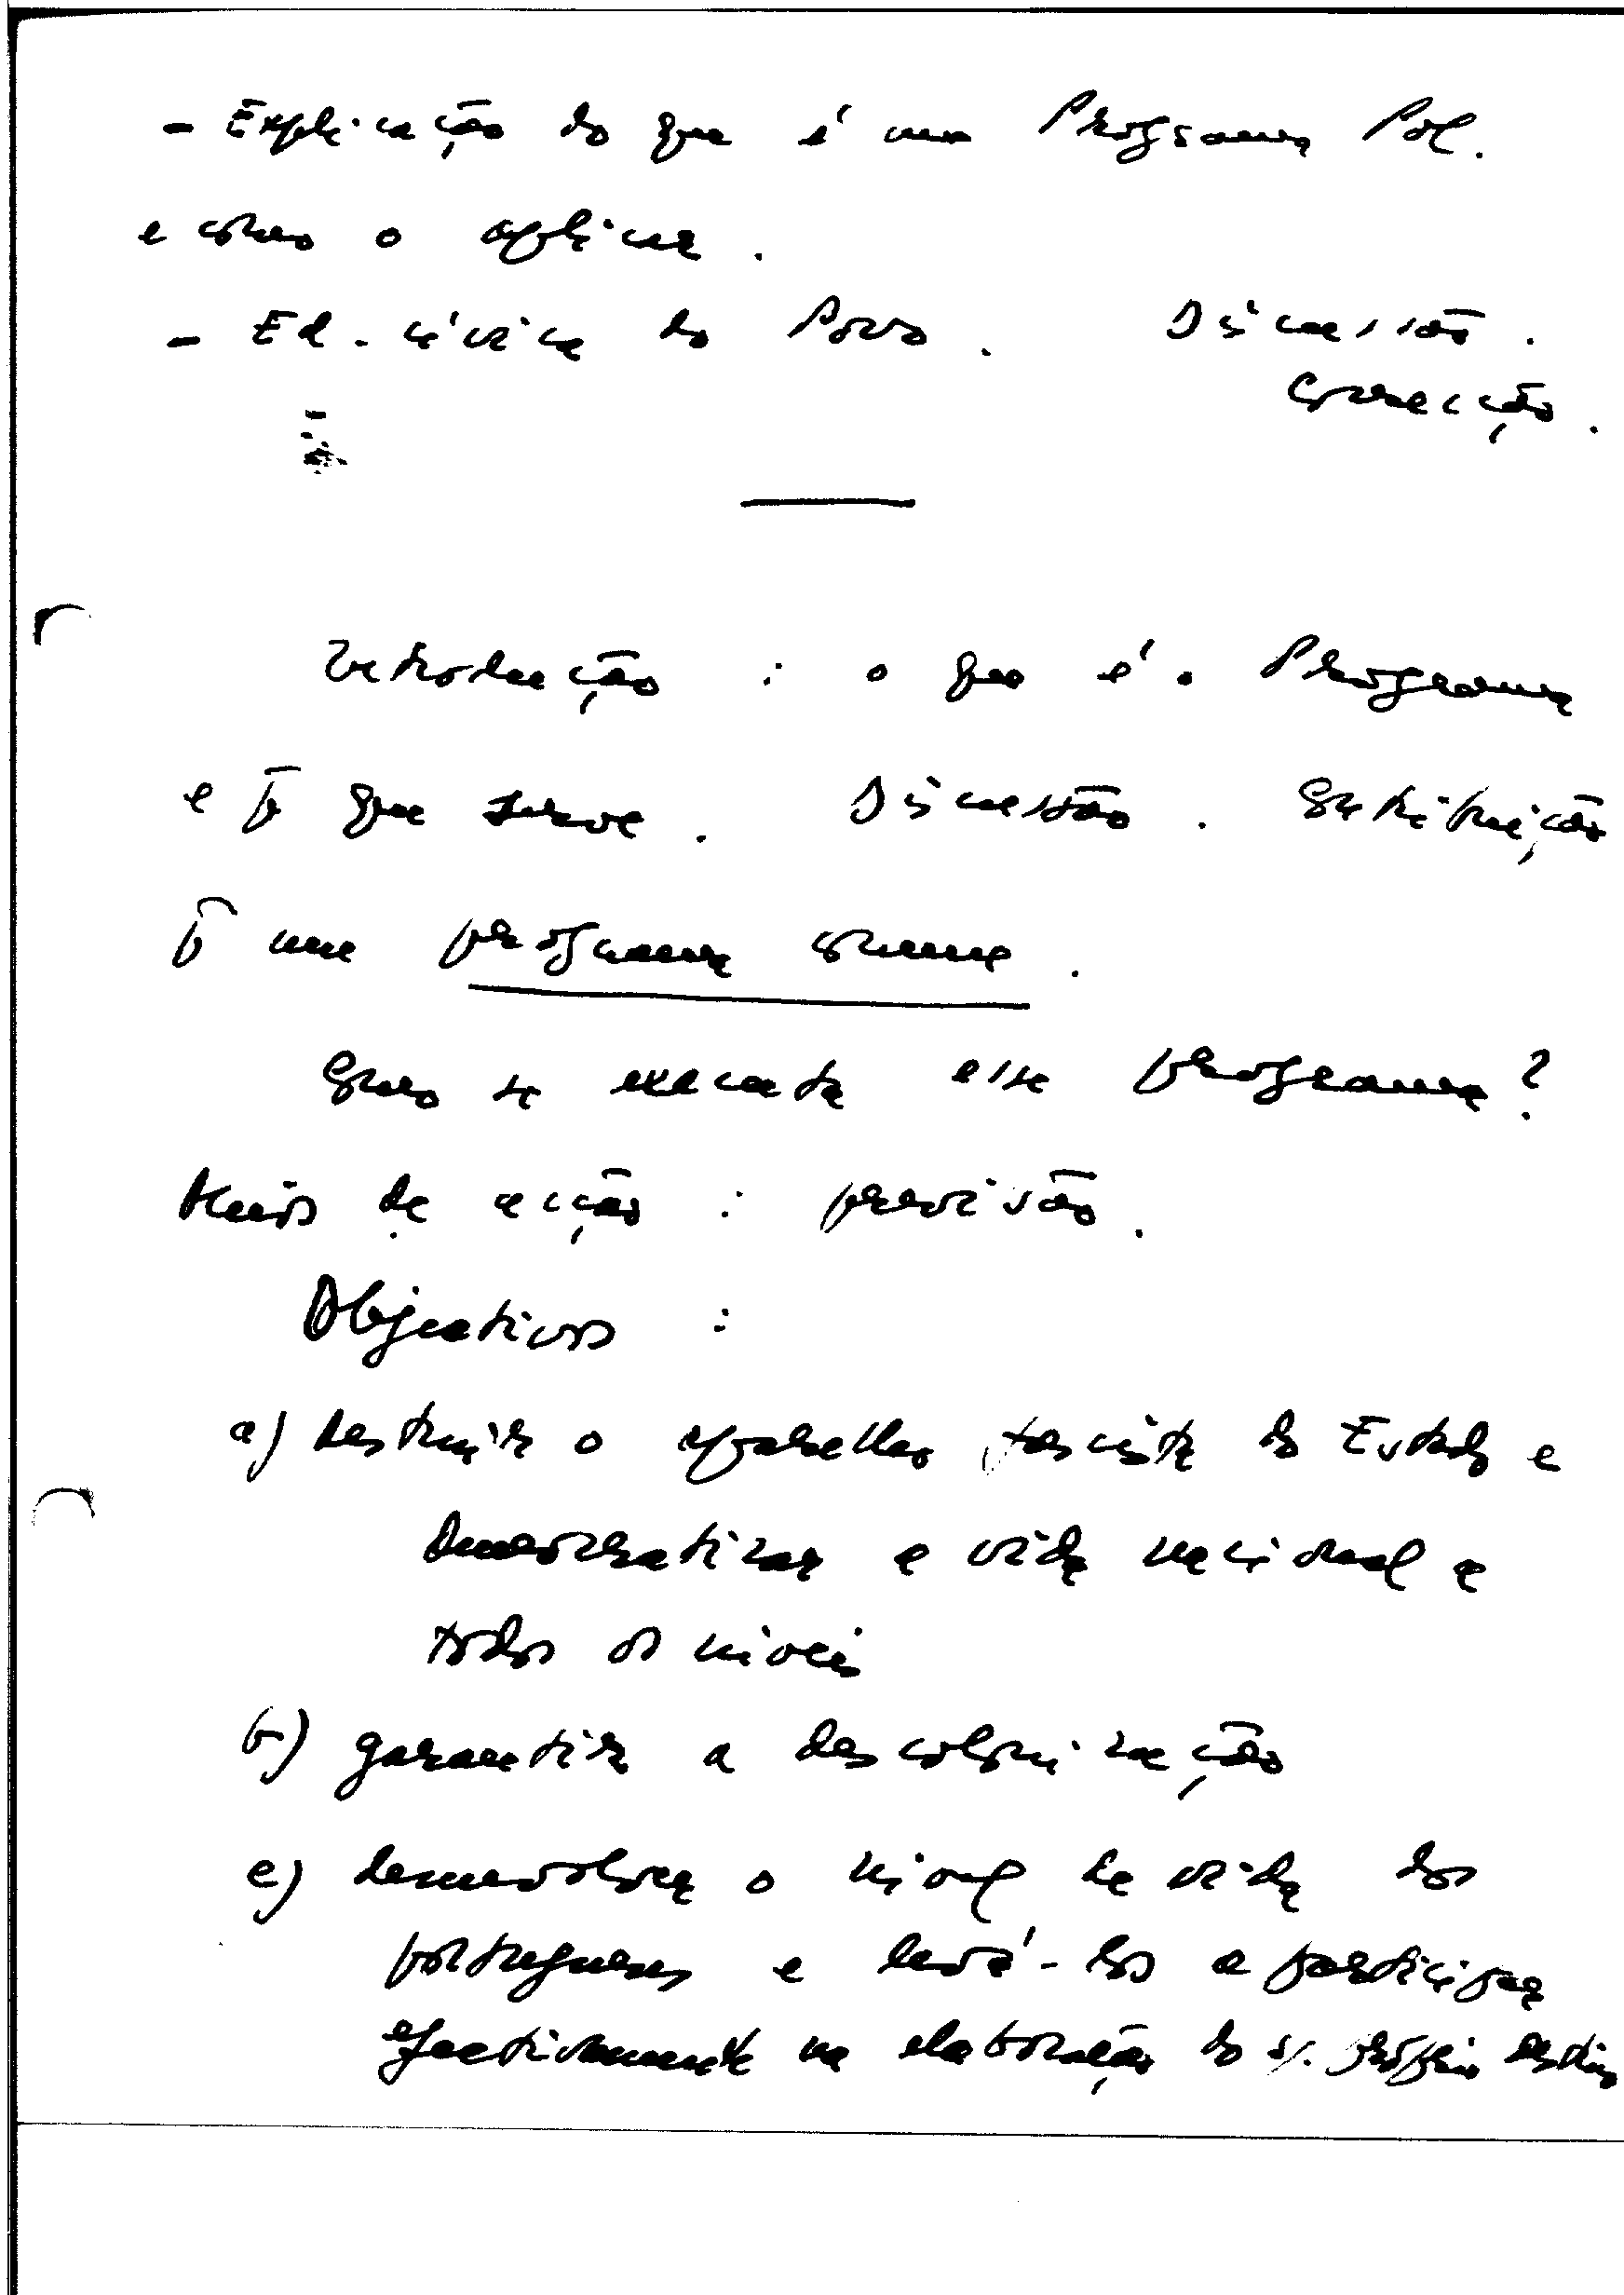 - Explicação do que é um Programa Pol.
e como o aplicar.
- Ed. cívica do Povo. Discussão.
Correcção.
Introdução : o que é o Programa
e p̄ que serve. Discussão. Contribuição
p̄ um programa comum.
Como se executa esse programa?
Meios de acção : previsão.
Objectivos :
a) destruir o aparelho fascista do Estado e
democratizar a vida nacional a
todos os níveis
b) garantir a descolonização
c) desenvolver o nível de vida dos
portugueses e levá-los a participar
efectivamente na elaboração do s/. próprio destino